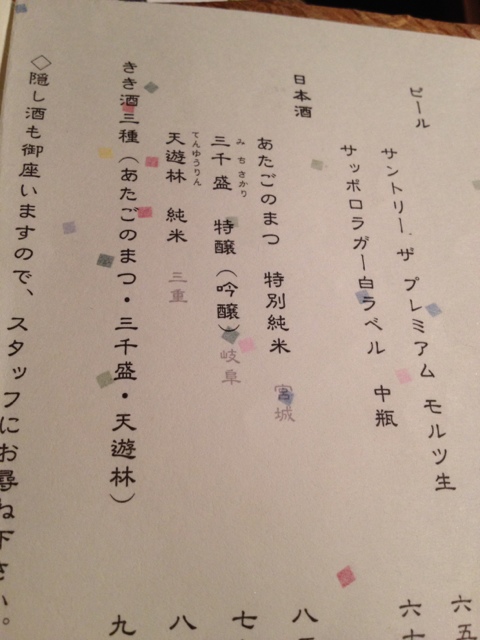 ビール
サントリー ザ プレミアム モルツ生 六五
サッポロラガー白ラベル 中瓶 六十
日本酒
あたごのまつ 特別純米 宮城 八
みちさかり
三千盛 特醸（吟醸） 岐阜 七
てんゆうりん
天遊林 純米 三重 八
きき酒三種（あたごのまつ・三千盛・天遊林） 九
◇隠し酒も御座いますので、スタッフにお尋ね下さい。